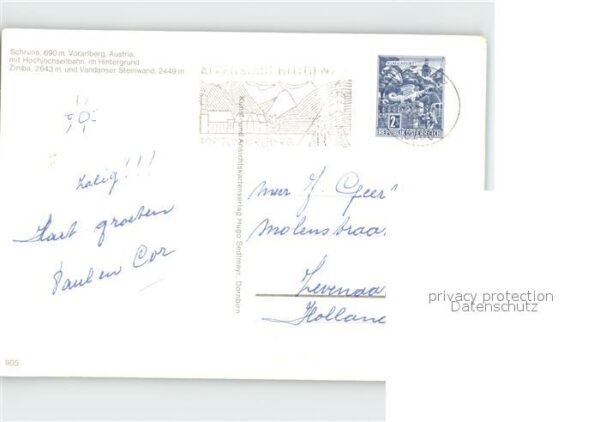 Schruns, 690 m, Vorarlberg, Austria,
mit Hochjochseilbahn, im Hintergrund
Zimba, 2643 m, und Vandanser Steinwand, 2449 m
ALPENSTADT BLUDENZ
2 S
REPUBLIK ÖSTERREICH
zalig!!!
Hart. groeten
Paul en Cor
Kunst- und Ansichtskartenverlag Hugo Sedlmayr, Dornbirn
J. Geer
Molenstraa
Zevenaa
Hollan
privacy protection
Datenschutz
905